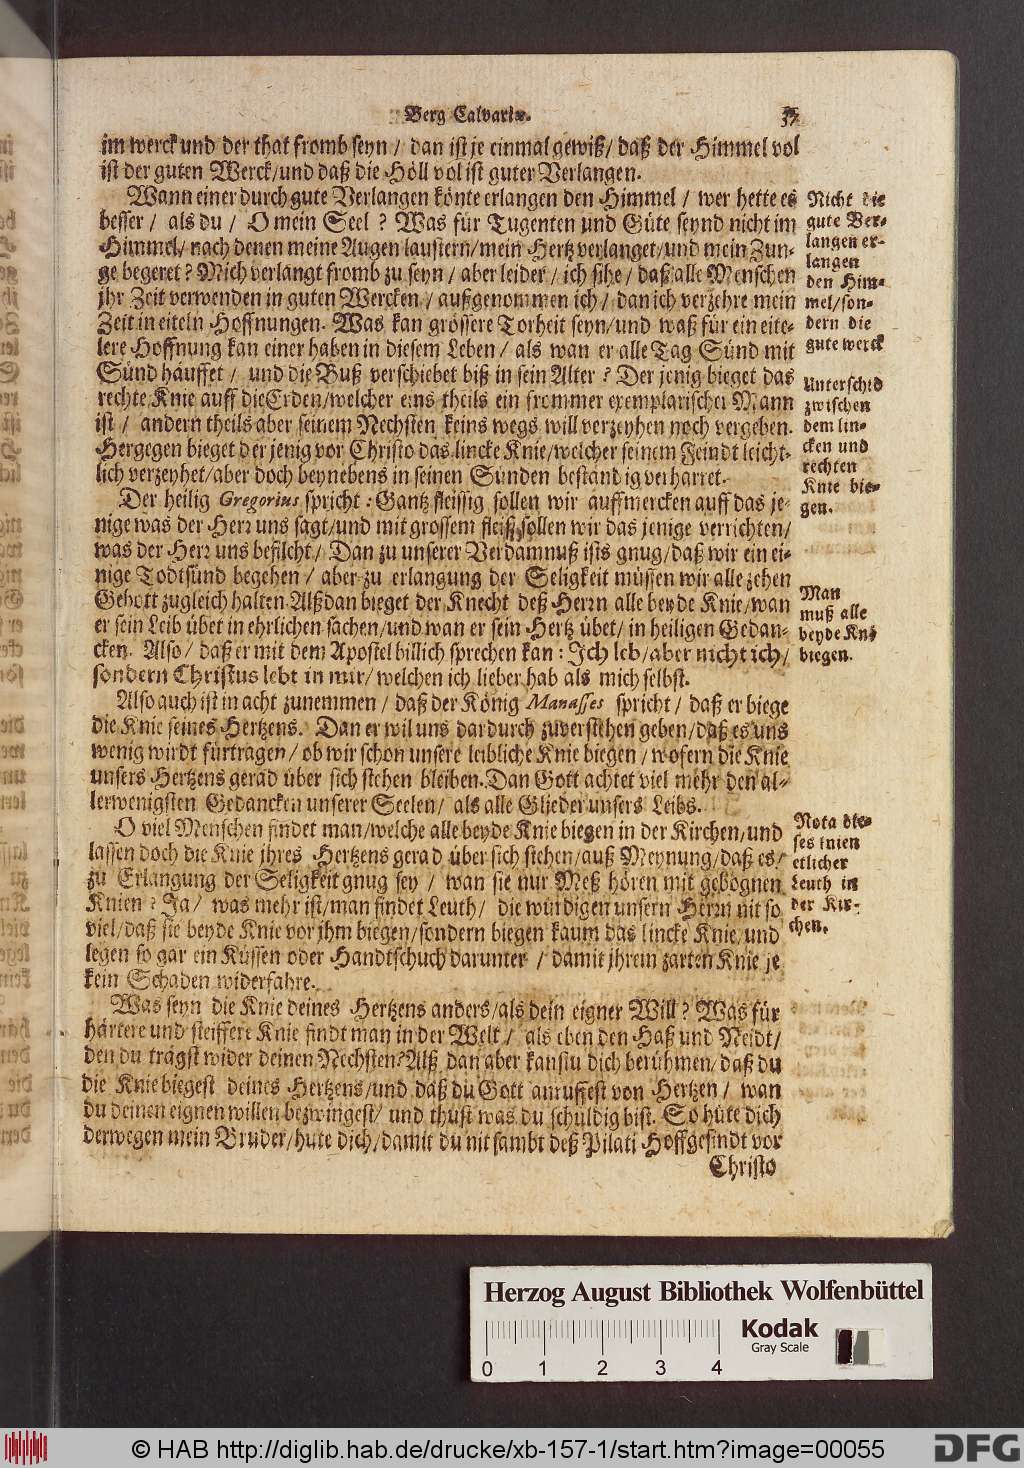 Berg Calvariæ.
im werck und der that fromb seyn / dan ist je einmal gewiß / daß der Himmel vol
ist der guten Werck / und daß die Höll vol ist guter Verlangen.
Wann einer durch gute Verlangen könte erlangen den Himmel / wer hette es
besser / als du / O mein Seel ? Was für Tugenten und Güte seynd nicht im
Himmel / nach denen meine Augen laustern / mein Hertz verlanget / und mein Zun-
ge begeret ? Mich verlangt fromb zu seyn / aber leider / ich sihe / daß alle Menschen
jhr Zeit verwenden in guten Wercken / außgenommen ich / dan ich verzehre mein
Zeit in eiteln Hoffnungen. Was kan grössere Torheit seyn / und waß für ein eite-
lere Hoffnung kan einer haben in diesem Leben / als wan er alle Tag Sünd mit
Sünd häuffet / und die Buß verschiebet biß in sein Alter ? Der jenig bieget das
rechte Knie auff die Erden / welcher eins theils ein frommer exemplarischer Mann
ist / andern theils aber seinem Nechsten keins wegs will verzeyhen noch vergeben.
Hergegen bieget der jenig vor Christo das lincke Knie / welcher seinem Feindt leicht-
lich verzeyhet / aber doch beynebens in seinen Sünden beständig verharret.
Der heilig Gregorius spricht : Gantz fleissig sollen wir auffmercken auff das je-
nige was der Herr uns sagt / und mit grossem fleiß sollen wir das jenige verrichten /
was der Herr uns befilcht / Dan zu unserer Verdamnuß ists gnug / daß wir ein ei-
nige Todtsünd begehen / aber zu erlangung der Seligkeit müssen wir alle zehen
Gebott zugleich halten. Alßdan bieget der Knecht deß Herrn alle beyde Knie / wan
er sein Leib übet in ehrlichen sachen / und wan er sein Hertz übet / in heiligen Gedan-
cken. Also / daß er mit dem Apostel billich sprechen kan : Ich leb / aber nicht ich /
sondern Christus lebt in mir / welchen ich lieber hab als mich selbst.
Also auch ist in acht zunemmen / daß der König Manasses spricht / daß er biege
die Knie seines Hertzens. Dan er wil uns dardurch zuverstehen geben / daß es uns
wenig wirdt fürtragen / ob wir schon unsere leibliche Knie biegen / wofern die Knie
unsers Hertzens gerad über sich stehen bleiben. Dan Gott achtet viel mehr den al-
lerwenigsten Gedancken unserer Seelen / als alle Glieder unsers Leibs.
O viel Menschen findet man / welche alle beyde Knie biegen in der Kirchen / und
lassen doch die Knie jhres Hertzens gerad über sich stehen / auß Meynung / daß es /
zu Erlangung der Seligkeit gnug sey / wan sie nur Meß hören mit gebognen
Knien ? Ja / was mehr ist / man findet Leuth / die würdigen unsern Herrn nit so
viel / daß sie beyde Knie vor jhm biegen / sondern biegen kaum das lincke Knie / und
legen so gar ein Küssen oder Handtschuch darunter / damit jhrem zarten Knie je
kein Schaden widerfahre.
Was seyn die Knie deines Hertzens anders / als dein eigner Will ? Was für
härtere und steiffere Knie findt man in der Welt / als eben den Haß und Neidt /
den du trägst wider deinen Nechsten ? Alß dan aber kanstu dich berühmen / daß du
die Knie biegest deines Hertzens / und daß du Gott anruffest von Hertzen / wan
du deinen eignen willen bezwingest / und thust was du schuldig bist. So hüte dich
derwegen mein Bruder / hüte dich / damit du nit sambt deß Pilati Hoffgesindt vor
Christo
Nicht die
gute Ver-
langen er-
langen
den Him-
mel / son-
dern die
gute werck
Unterschid
zwischen
dem lin-
cken und
rechten
Knie bie-
gen.
Man
muß alle
beyde Knie
biegen.
Nota die-
ses knien
etlicher
Leuth in
der Kir-
chen.
Herzog August Bibliothek Wolfenbüttel
Kodak
Gray Scale
0 1 2 3 4
© HAB http://diglib.hab.de/drucke/xb-157-1/start.htm?image=00055
DFG